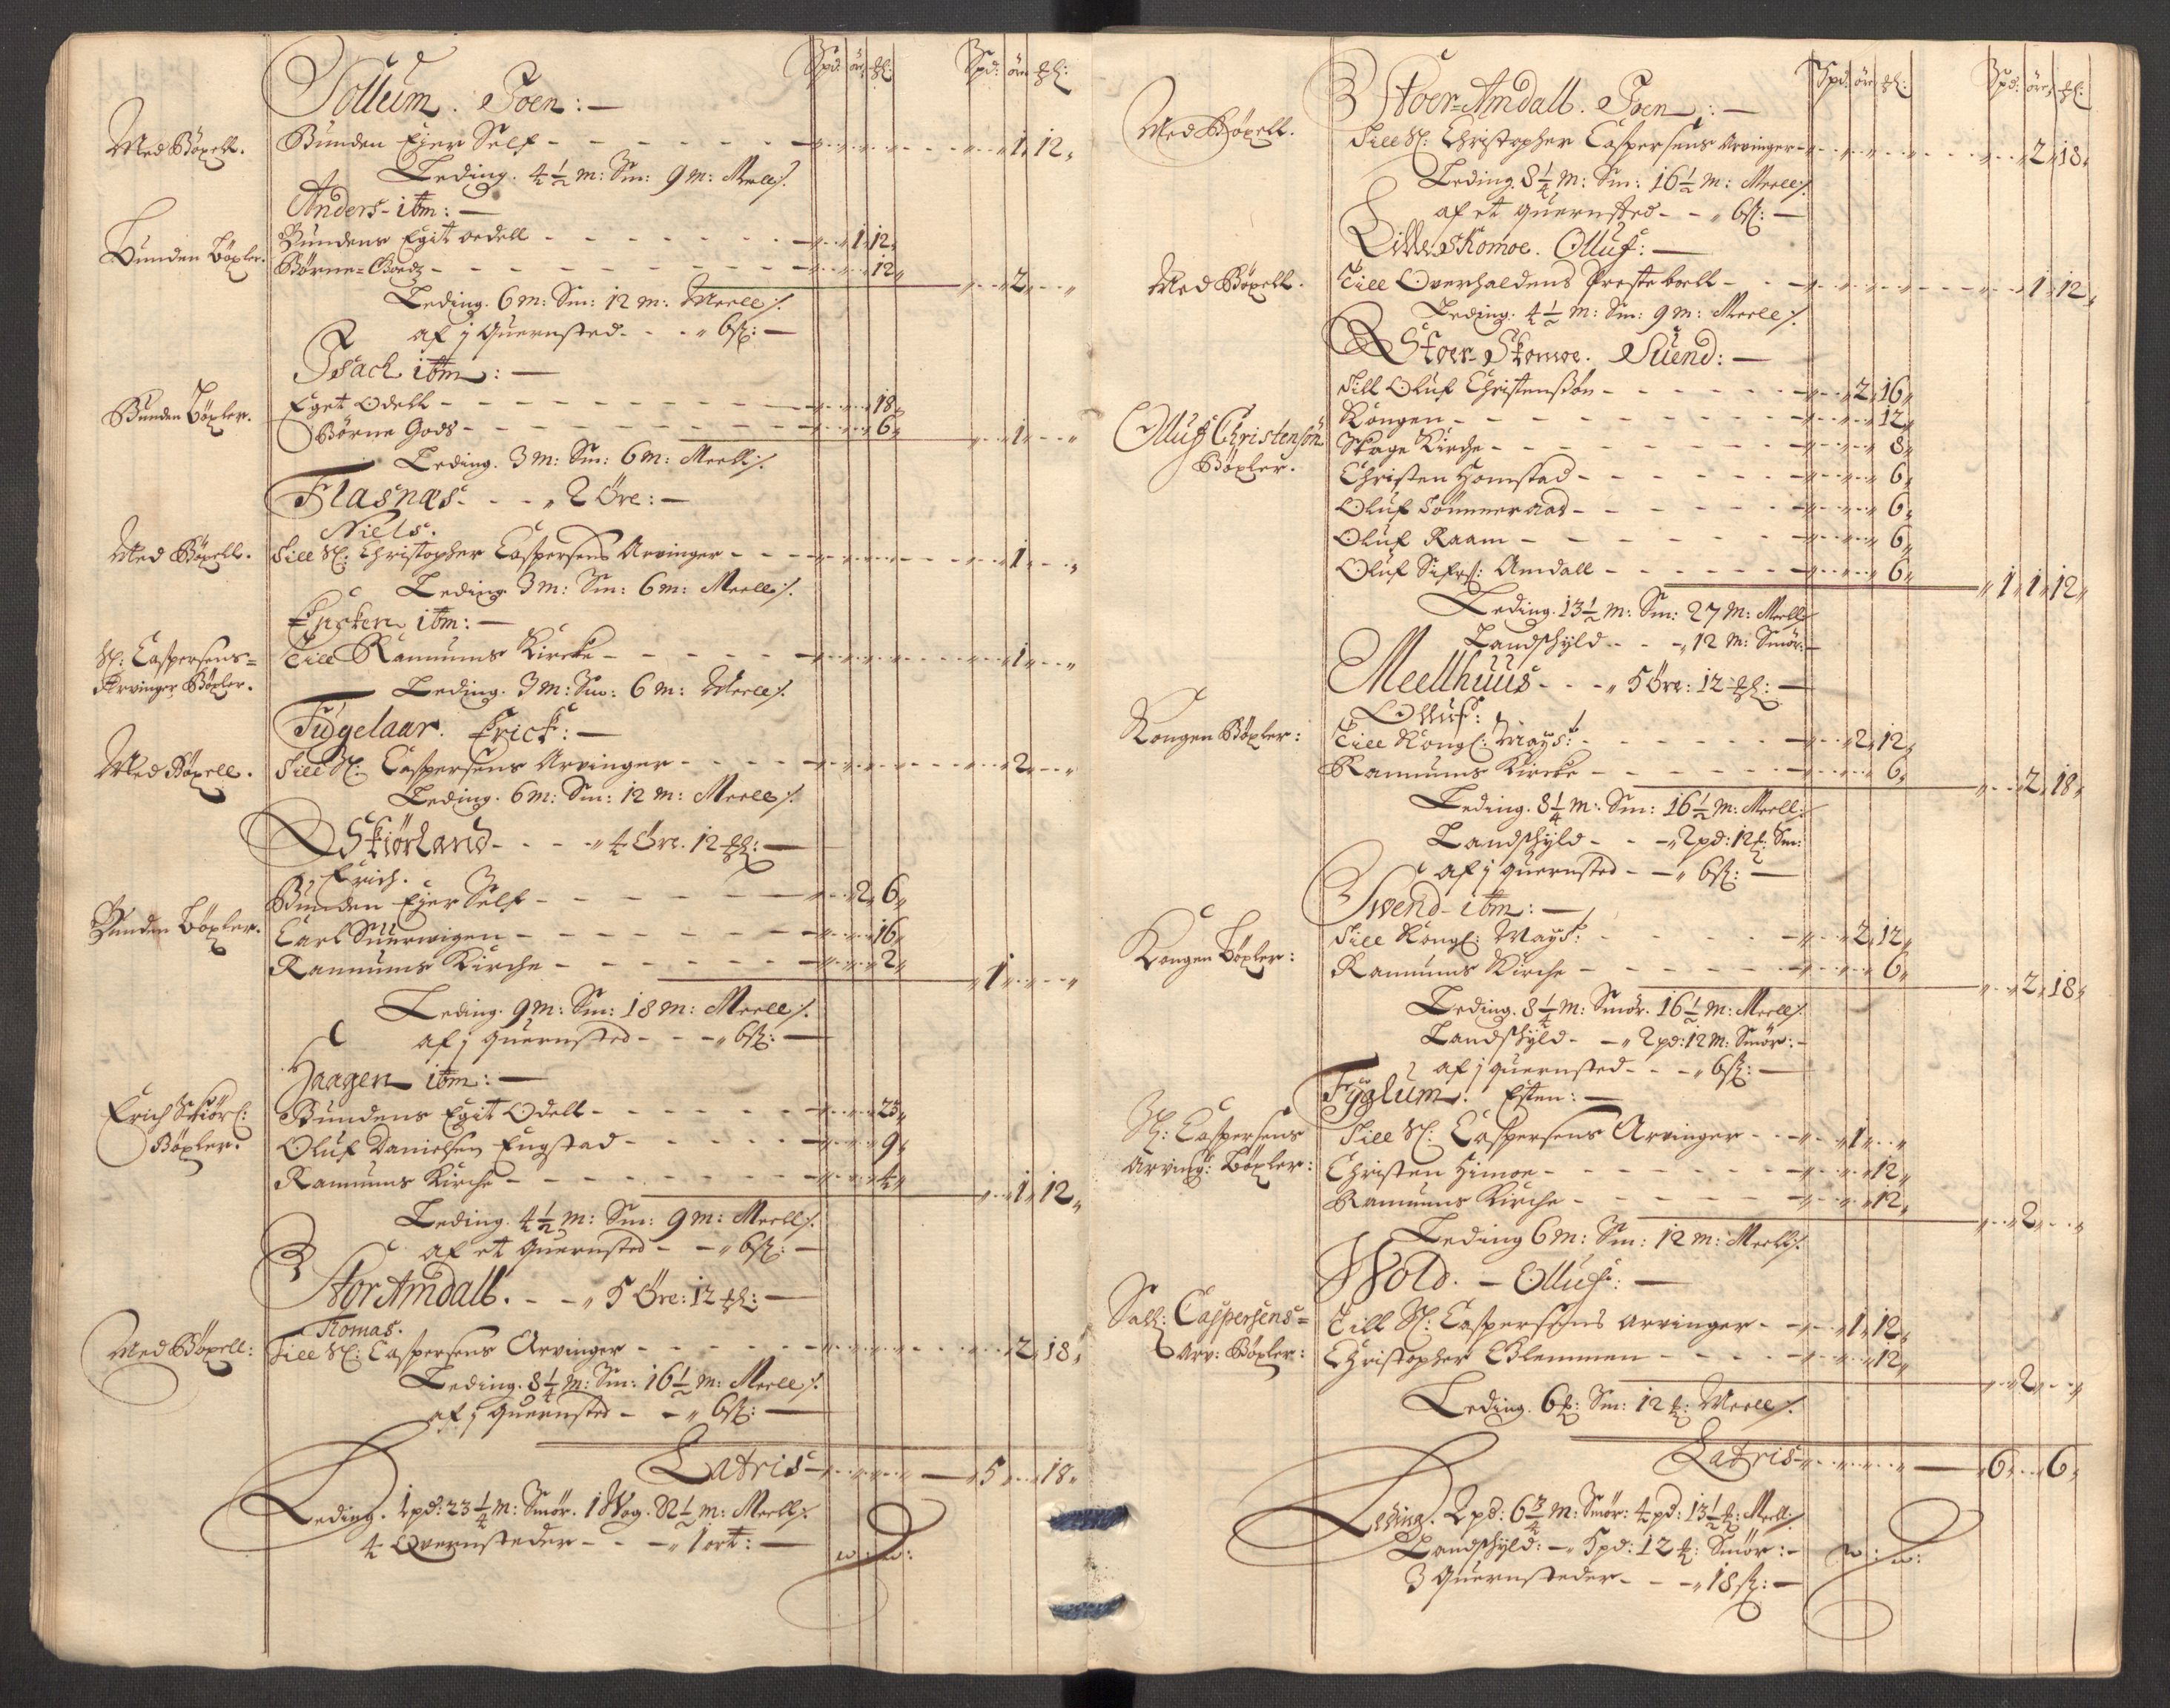 Spd: öre ₰: Spd: öre ₰:
Sollum. Joen: —
Med Böxell. Bunden Ejer Self - - - 1, 12,
Leding. 4 1/2 m: Sm: 9 m: Meell.
Anders - itm: —
Bunden Böxler. Bundens Egit oedell - - - 1, 12,
Börne-Goedz - - - 12, 2
Leding. 6 m: Sm: 12 m: Meell.
af 1 Quernsted - - 6 ß: —
Isach itm: —
Bunden Böxler. Eget Odell - - - 18,
Börne Gods - - - 6, 1
Leding. 3 m: Sm: 6 m: Meell.
Flasnæs - - 2 Öre: —
Niels.
Med Böxell. Till Sl: Christopher Caspersens Arvinger - - - 1
Leding 3 m: Sm: 6 m: Meell.
Epsken itm: —
Sl: Caspersens= Till Ranumms Kircke - - - 1
Arvinger Böxler.
Leding. 3 m: Sm: 6 m: Meell.
Fugelaar. Erick: —
Med Böxell. Till Sl: Caspersens Arvinger - - - 2
Leding. 6 m: Sm: 12 m: Meell.
Skiörland - - - 4 Öre. 12 ₰: —
Erich.
Bunden Böxler. Bunden Ejer Self - - - 2, 6,
Carl Suerwigen - - - 16,
Ranumms Kirche - - - 2, 1
Leding. 9 m: Sm: 18 m: Meell.
af 1 quernsted - - 6 ß: —
Haagen itm: —
Erich Skiörl: Böxler. Bundens Egit Odell - - - 23,
Oluf Danielsen Eugstad - - - 9,
Ranumms Kirche - - - 4, 1, 12,
Leding. 4 1/2 m: Sm: 9 m: Meell.
af et quernsted - - 6 ß: —
Stor Amdall. - - 5 Öre: 12 ₰: —
Tomas.
Med Böxell: Till Sl: Caspersens Arvinger - - - 2, 18,
Leding. 8 1/4 m: Sm: 16 1/2 m: Meell.
af 1 quernsted - - 6 ß: —
Latris - - - 5 18,
Leding. 1 pd: 23 1/4 m: Smör. 1 Wog. 82 1/2 m: Meell.
4 Qvernsteder - - 1 ort: —
Spd: öre ₰: Spd: öre ₰:
Stoer-Amdall. Joen: —
Med Böxell. Till Sl: Christopher Caspersens Arvinger - - - 2, 18,
Leding 8 1/4 m: Sm: 16 1/2 m: Meell.
af et quernsted - - 6 ß: —
Lille Skomoe. Olluf: —
Med Böxell. Till Overhaldens Presteboell - - - 1, 12,
Leding. 4 1/2 m: Sm: 9 m: Meell.
Stoer-Skomoe. Suend: —
Olluf Christensön Böxler. Till Oluf Christensßön - - - 2, 16,
Kongen - - - 12,
Skage Kirche - - - 8,
Christen Homstad - - - 6,
Oluf Sönmeraad - - - 6,
Oluf Raam - - - 6,
Oluf Sifrs: Amdall - - - 6, 1, 1, 12,
Leding. 13 1/2 m: Sm: 27 m: Meell
Landskyld - - 12 m: Smör: —
Meellhuus - - 5 Öre: 12 ₰: —
Olluf:
Kongen Böxler: Till Kongl: Mayst: - - - 2, 12,
Ranumms Kircke - - - 6, 2, 18,
Leding. 8 1/4 m: Sm: 16 1/2 m: Meell.
Landskyld - - 2 pd: 12 ℔: Sm:
af 1 quernsted - - 6 ß: —
Swend - itm: —
Kongen Böxler: Till Kongl: Mayst: - - - 2, 12,
Ranumms Kirche - - - 6, 2, 18,
Leding. 8 1/4 m: Smör. 16 1/2 m: Meell.
Landskyld - - 2 pd: 12 m: Smör: -
af 1 quernsted - - 6 ß: —
Fyglum. Esten: —
Sl: Caspersens Arving: Böxler: Till Sl: Caspersens Arvinger - - - 1
Christen Himoe - - - 12,
Ranumms Kirche - - - 12, 2
Leding 6 m: Sm: 12 m: Meell.
Wold. - Olluf: —
Sall: Caspersens= Arv: Böxler: Till Sl: Caspersens arvinger - - - 1, 12,
Christopher Blemmen - - - 12, 2
Leding. 6 ℔: Sm: 12 ℔: Meell.
Latris - - - 6 6,
Leding. 2 pd: 6 3/4 m: Smör: 4 pd: 13 1/2 ℔: Meell.
Landskyld: — 5 pd: 12 ℔: Smör: -
3 Quernsteder - - 18 ß: —